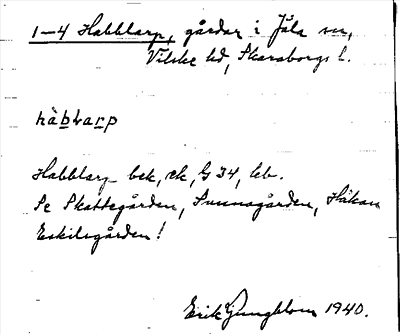 1-4 Habblarp, gårdar i Jäla sn,
Vilske hd, Skaraborgs l.
hàb̲larp
Habblarp bek, ek, G 34, leb.
Se Skattegården, Sunnagården, Håkan
Eskilsgården!
Erik Ljungblom 1940.